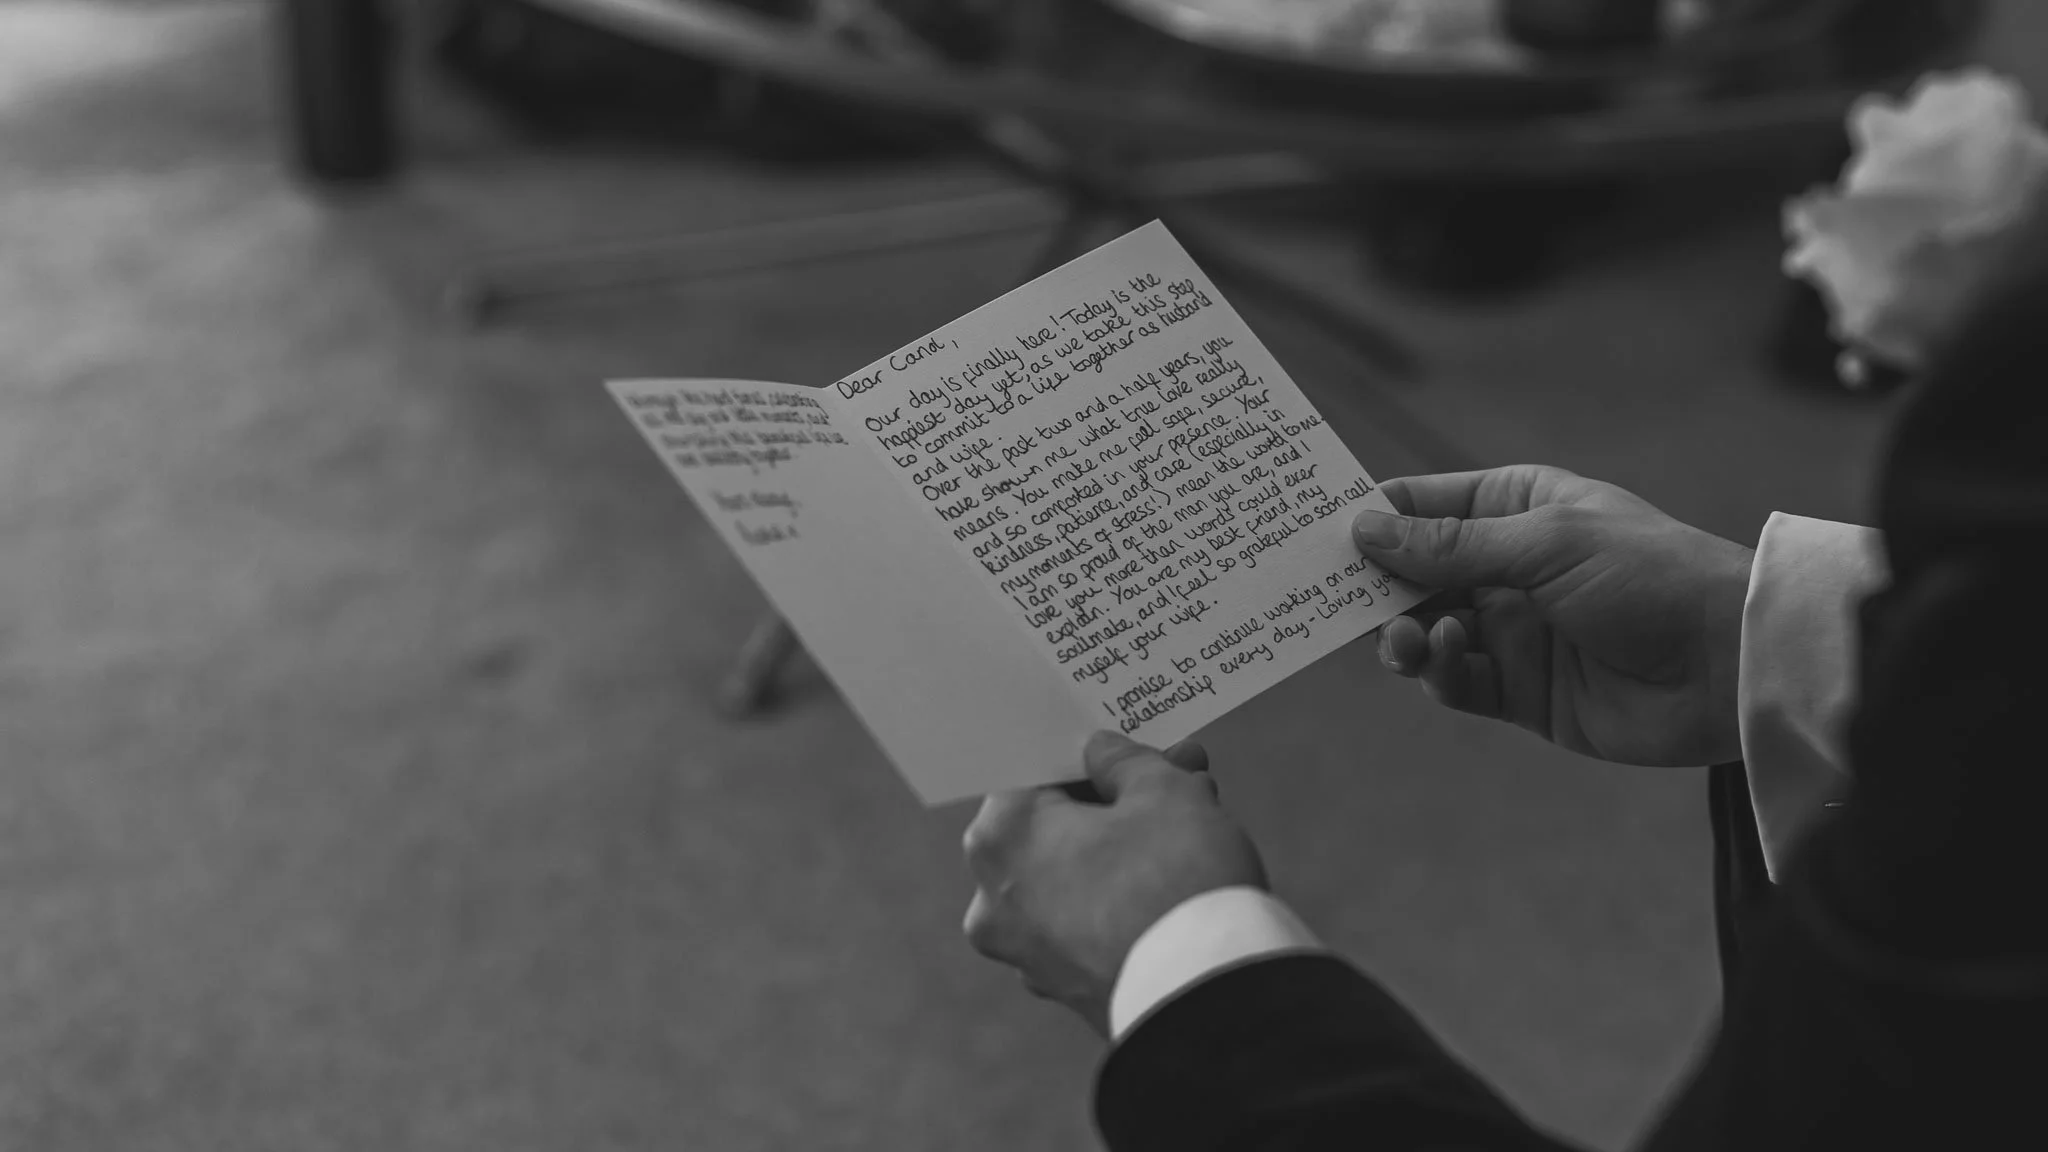 Dear Carol,
Our day is finally here! Today is the
happiest day yet, as we take this step
to commit to a life together as husband
and wife.
Over the past two and a half years, you
have shown me what true love really
means. You make me feel safe, secure,
and so comforted in your presence. Your
kindness, patience, and care (especially in
my moments of stress!) mean the world to me.
I am so proud of the man you are, and I
love you more than words could ever
explain. You are my best friend, my
soulmate, and I feel so grateful to soon call
myself your wife.
I promise to continue working on our
relationship every day - Loving you